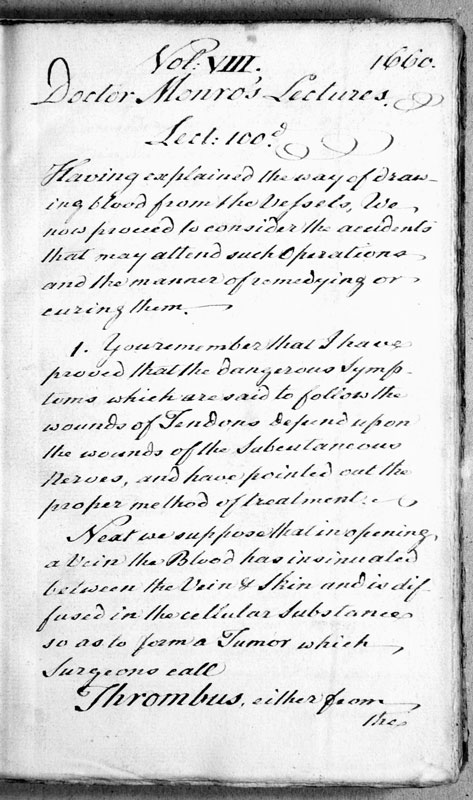 Vol: VIII. 1660.
Doctor Monro's Lectures.
Lect: 100.d
Having explained the way of draw-
ing blood from the Vessels, We
now proceed to consider the accidents
that may attend such Operations
and the manner of remedying or
curing them.
1. You remember that I have
proved that the dangerous Symp-
toms which are said to follow the
wounds of Tendons depend upon
the wounds of the Subcutaneous
Nerves, and have pointed out the
proper method of treatment.
Next we suppose that in opening
a Vein the Blood has insinuated
between the Vein & Skin and is dif-
fused in the cellular Substance
so as to form a Tumor which
Surgeons call
Thrombus, either from
the